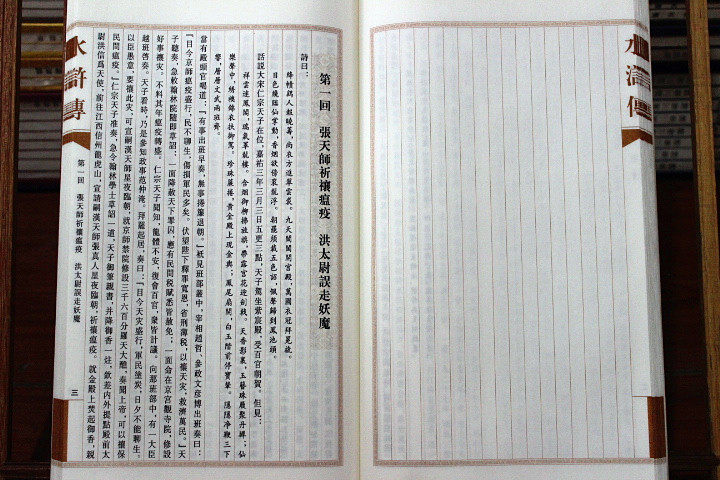 水滸傳
第一回　張天師祈禳瘟疫　洪太尉誤走妖魔
詩曰：
絳幘雞人報曉籌，尚衣方進翠雲裘。九天閶闔開宮殿，萬國衣冠拜冕旒。
日色纔臨仙掌動，香烟欲傍衮龍浮。朝罷須裁五色詔，佩聲歸到鳳池頭。
話說大宋仁宗天子在位，嘉祐三年三月三日五更三點，天子駕坐紫宸殿，受百官朝賀。但見：
祥雲迷鳳閣，瑞氣罩龍樓。含烟御柳拂旌旗，帶露宮花迎劍戟。天香影裏，玉簪珠履聚丹墀；仙
樂聲中，綉襖錦衣扶御駕。珍珠簾捲，黃金殿上現金輿；鳳尾扇開，白玉階前停寶輦。隱隱净鞭三下
響，層層文武兩班齊。
當有殿頭官喝道：「有事出班早奏，無事捲簾退朝。」衹見班部叢中，宰相趙哲、參政文彥博出班奏曰：
「目今京師瘟疫盛行，民不聊生，傷損軍民多矣。伏望陛下釋罪寬恩，省刑薄稅，以禳天災，救濟萬民。」天
子聽奏，急敕翰林院隨即草詔，一面降赦天下罪囚，應有民間稅賦悉皆赦免；一面命在京宮觀寺院，修設
好事禳災。不料其年瘟疫轉盛。仁宗天子聞知，龍體不安，復會百官，衆皆計議。向那班部中，有一大臣
越班啓奏。天子看時，乃是參知政事范仲淹。拜罷起居，奏曰：「目今天災盛行，軍民塗炭，日夕不能聊生。
以臣愚意，要禳此災，可宣嗣漢天師星夜臨朝，就京師禁院修設三千六百分羅天大醮，奏聞上帝，可以禳保
民間瘟疫。」仁宗天子准奏，急令翰林學士草詔一道，天子御筆親書，并降御香一炷，欽差內外提點殿前太
尉洪信爲天使，前往江西信州龍虎山，宣請嗣漢天師張真人星夜臨朝，祈禳瘟疫。就金殿上焚起御香，親
水滸傳
第一回　張天師祈禳瘟疫　洪太尉誤走妖魔
三